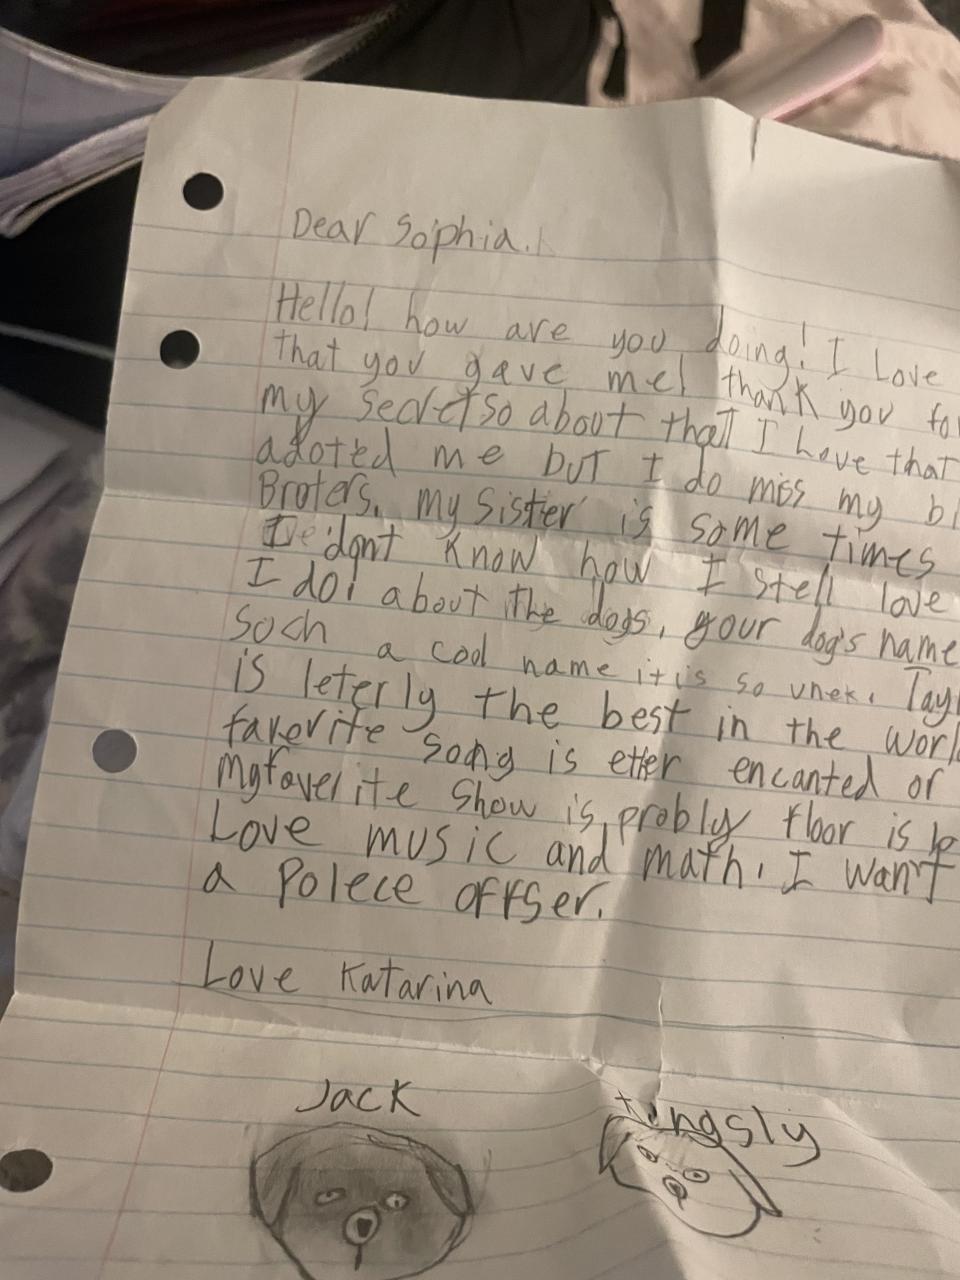 Dear Sophia.
Hello! how are you doing! I Love
that you gave me! thank you fo
my secret so about that I have that
adoted me but I do miss my bi
Broters. my sister is some times
don't know how I stell love
I do! about the dogs, your dog's name
soch a cool name it is so unek. Tayl
is leterly the best in the worl
faverite song is ether encanted or
my faverite show is probly floor is
Love music and math. I want
a Polece offser.
Love Katarina
Jack
kingsly